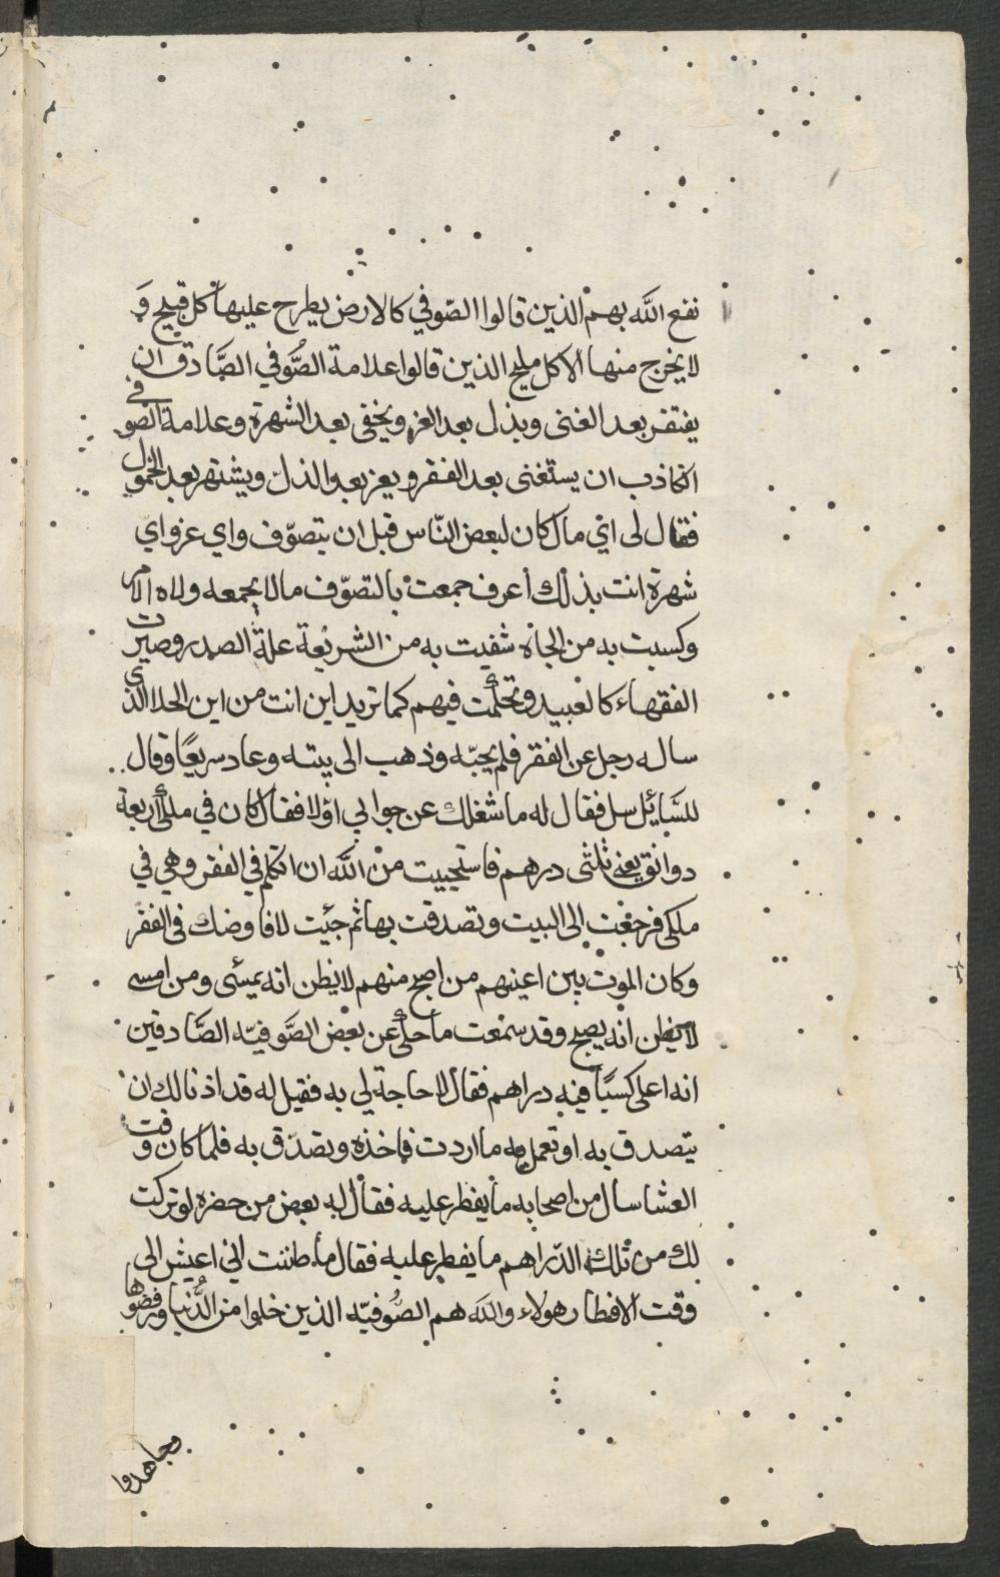 نفع الله بهم الذين قالوا الصّوفي كالارض يطرح عليها كل قبيح وَ
لا يخرج منها الا كل مليح الذين قالوا علامة الصُّوفي الصَّادق ان
يفتقر بعد الغنى ويذل بعد العز ويخفى بعد الشهرة وعلامة الصوفي
الكاذب ان يستغنى بعد الفقر ويعز بعد الذل ويشتهر بعد الخمول
فقال لى اي مال كان لبعض النّاس قبل ان يتصوّف واي عز واي
شهرة انت بذلك أعرف جمعت بالتصوّف مالا يجمعه ولاه الامر
وكسبت به من الجاه شفيت به من الشريعة علة الصدر وصيرت
الفقهاء كالعبيد وتحكمت فيهم كما تريد اين انت من ابن الجلا الذى
ساله رجل عن الفقر فلم يجبّه وذهب الى بيته وعاد سريعًا وقال
للسّايئل سل فقال له ما شغلك عن جوابي اوّلا فقال كان في ملكى أربعة
دوانق يعني ثلثى درهم فاستحييت من الله ان اتكلم في الفقر وهي في
ملكى فرجعت إلى البيت وتصدقت بها ثم جئت لافاوضك في الفقر
وكان الموت بين اعينهم من اصبح منهم لا يظن انه يمسى ومن امسى
لا يظن انه يصبح وقد سمعت ما حكى عن بعض الصَّوفيّه الصَّادقين
انه اعطى كسبًا فيه دراهم فقال لا حاجة لي به فقيل له قد اذنا لك ان
تتصدق به او تعمل به ما اردت فاخذه وتصدّق به فلما كان وقت
العشا سال من اصحابه ما يفطر عليه فقال له بعض من حضره لو تركت
لك من تلك الدّراهم ما يفطر عليه فقال ما ظننت اني اعيش الى
وقت الافطار هولاء والله هم الصُّوفيّه الذين خلوا من الدُّنيا ورفضوها
وجاهدوا